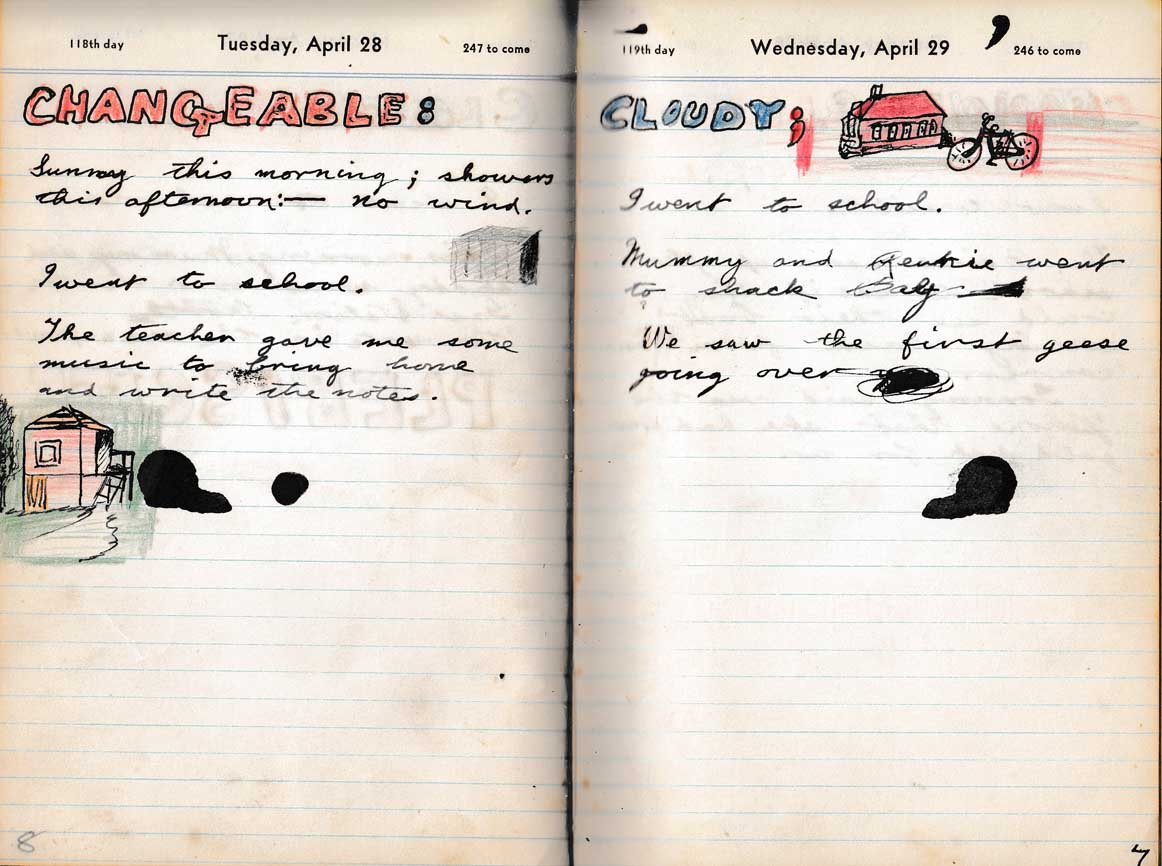 118th day
Tuesday, April 28
247 to come
CHANGEABLE:
Sunnay this morning; showers
this afternoon:— no wind.
I went to school.
The teacher gave me some
music to bring home
and write the notes.
8
119th day
Wednesday, April 29
246 to come
CLOUDY;
I went to school.
Mummy and went
to shack
We saw the first geese
going over